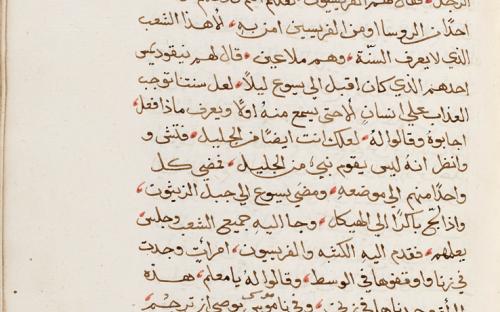 الرجل فقال لهم الفريسيون لعلكم
احدًا من الروسا او من الفريسيين امن به لا هذا الشعب
الذي لا يعرف السنّة وهم ملاعين قال لهم نيقوديمس
احدهم الذي كان اقبل الي يسوع ليلًا لعل سنتنا توجب
العذاب علي انسانٍ الا حتى يسمع منه اولًا ويعرف ماذا فعل
اجابوهُ وقالوا له لعلك انت ايضًا من الجليل فتش و
وانظر انه ليس يقوم نبيٌ من الجليل فمضي كل
واحدًا منهم الي موضعه ومضي يسوع الي جبل الزيتون
واذ ادلج باكرًا الي الهيكل وجا اليه جميع الشعب وجلس
يعلمهم فقدم اليه الكتبه والفريسيون امراةٍ وجدت
في زنا واوقفوها في الوسط وقالوا له يا معلم هذه
وجدناها في وفي ناموس موسى يوصي ان ترجم